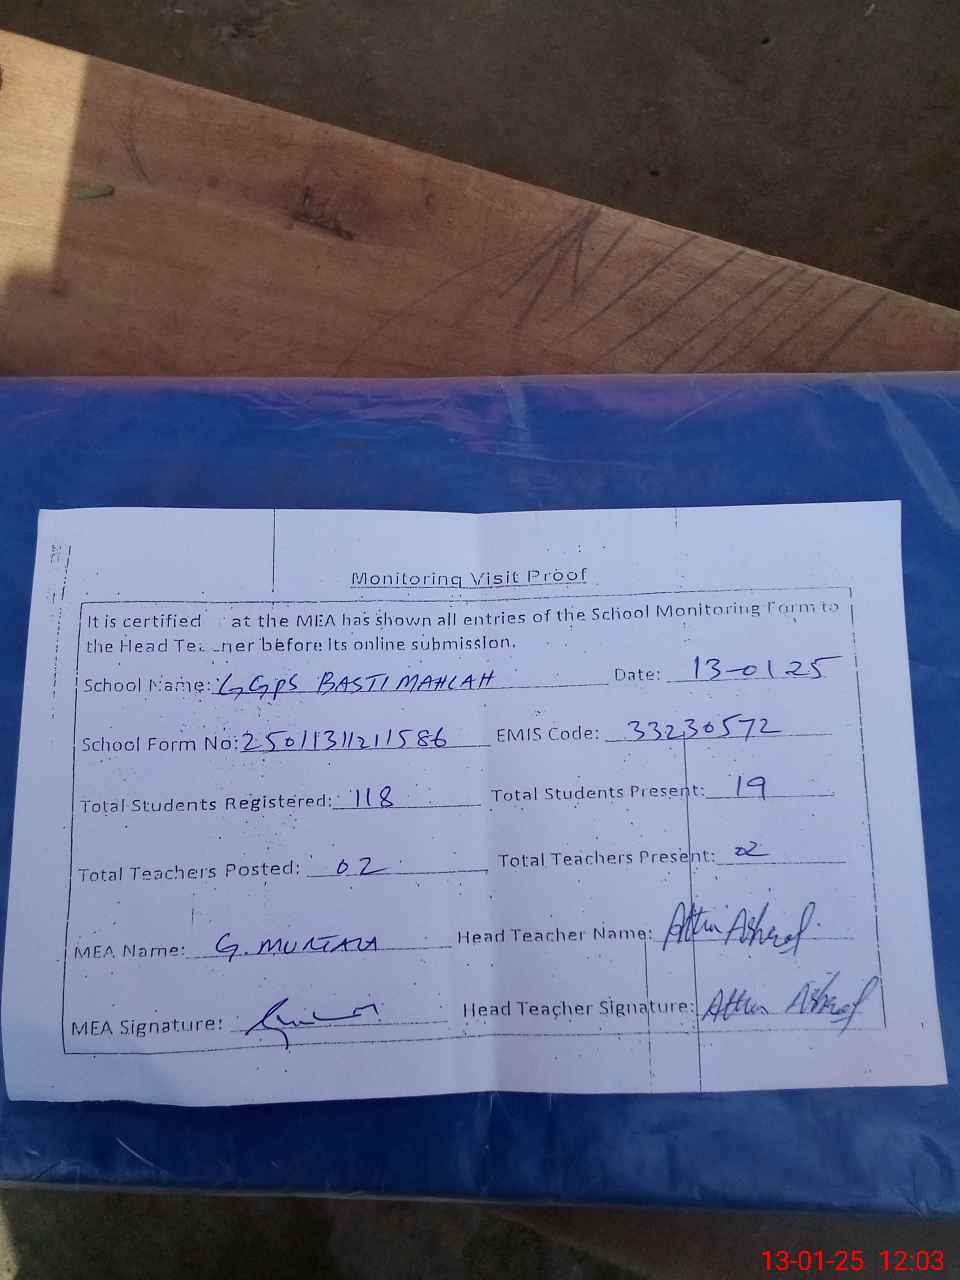 Monitoring Visit Proof
It is certified at the MEA has shown all entries of the School Monitoring Form to
the Head before its online submission.
School Name: GGPS BASTI MAHLAH Date: 13-01-25
School Form No: 2501131121 1586 EMIS Code: 33230572
Total Students Registered: 118 Total Students Present: 19
Total Teachers Posted: 02 Total Teachers Present: 02
MEA Name: G. MURTAZA Head Teacher Name: Asheraf
MEA Signature: Head Teacher Signature: Asheraf
13-01-25 12:03